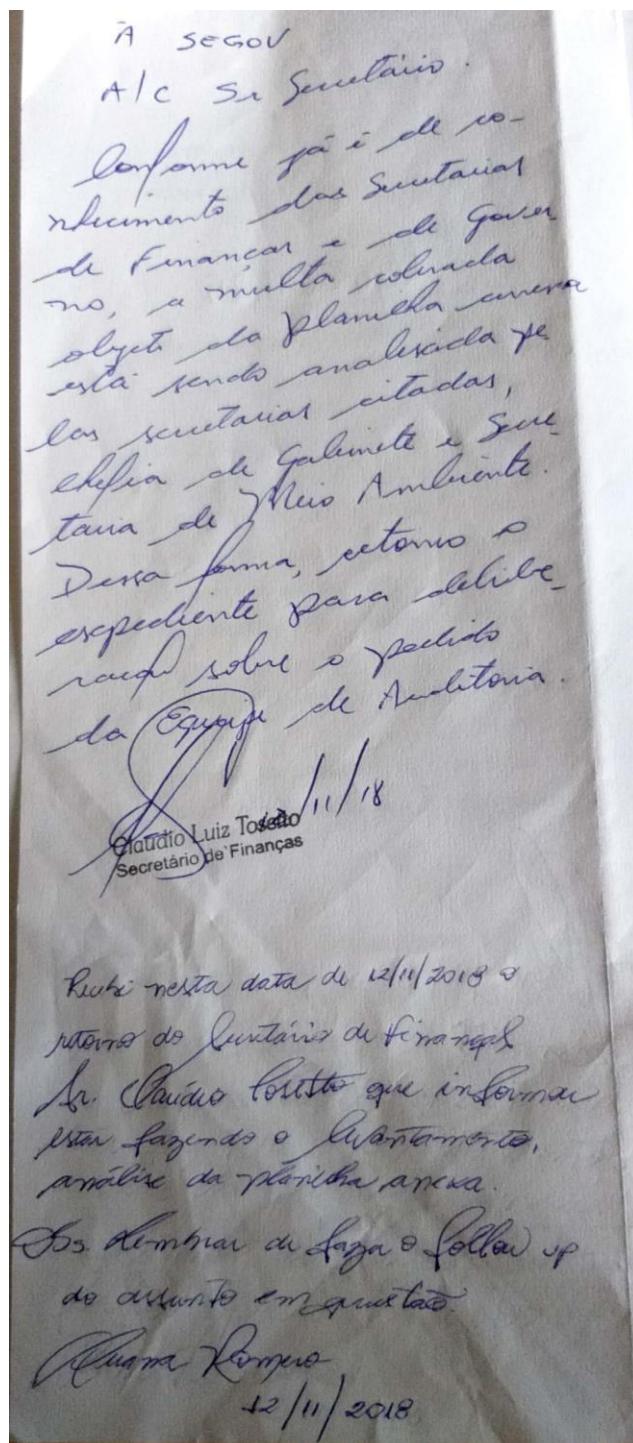 À SEGOV
A/C Sr Secretário.
Conforme já é de co-
nhecimento das Secretarias
de Finanças e de Gover
no, a multa cobrada
objeto da planilha anexa
está sendo analisada pe
las secretarias citadas,
chefia de Gabinete e Secre
taria de Meio Ambiente.
Dessa forma, retorno o
expediente para delibe-
ração sobre o pedido
da Equipe de Auditoria.
12/11/18
Claudio Luiz Tosetto
Secretário de Finanças
Recebi nesta data de 12/11/2018 o
retorno do Secretário de Finanças
Sr. Claúdio Tosetto que informar
estar fazendo o levantamento,
análise da planilha anexa.
Obs. Lembrar de faza o follow up
do assunto em questão.
Romero
12/11/2018